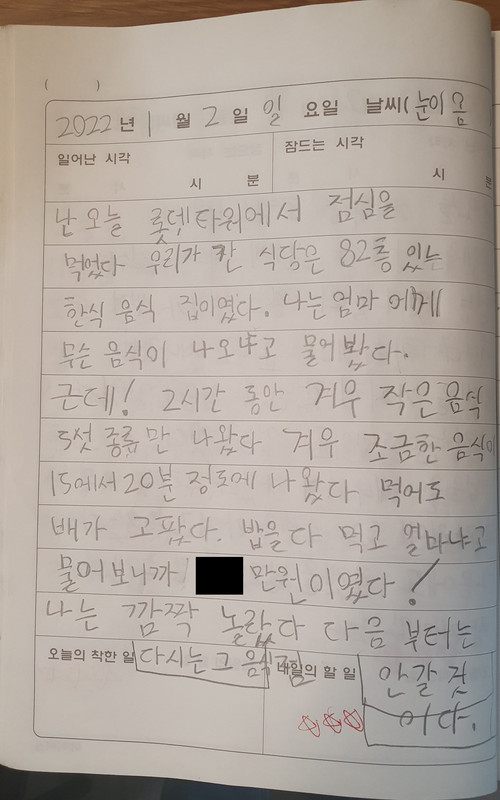 ( )
2022 년 1 월 2 일 일 요일 날씨( 눈이 옴
일어난 시각 잠드는 시각
시 분 시 분
난 오늘 롯덴타워에서 점심을
먹었다 우리가 간 식당은 82층 있는
한식 음식 집이였다. 나는 엄마 에게
무슨 음식이 나오냐고 물어 봤다.
근데! 2시간 동안 겨우 작은 음식
5섯 종류만 나왔다 겨우 조금한 음식이
15에서 20분 정도에 나왔다 먹어도
배가 고팠다. 밥을 다 먹고 얼마냐고
물어보니까 만원이였다!
나는 깜짝 놀랐다 다음 부터는
오늘의 착한 일 다시는 그 음식점 내일의 할 일 안갈 것
이다.